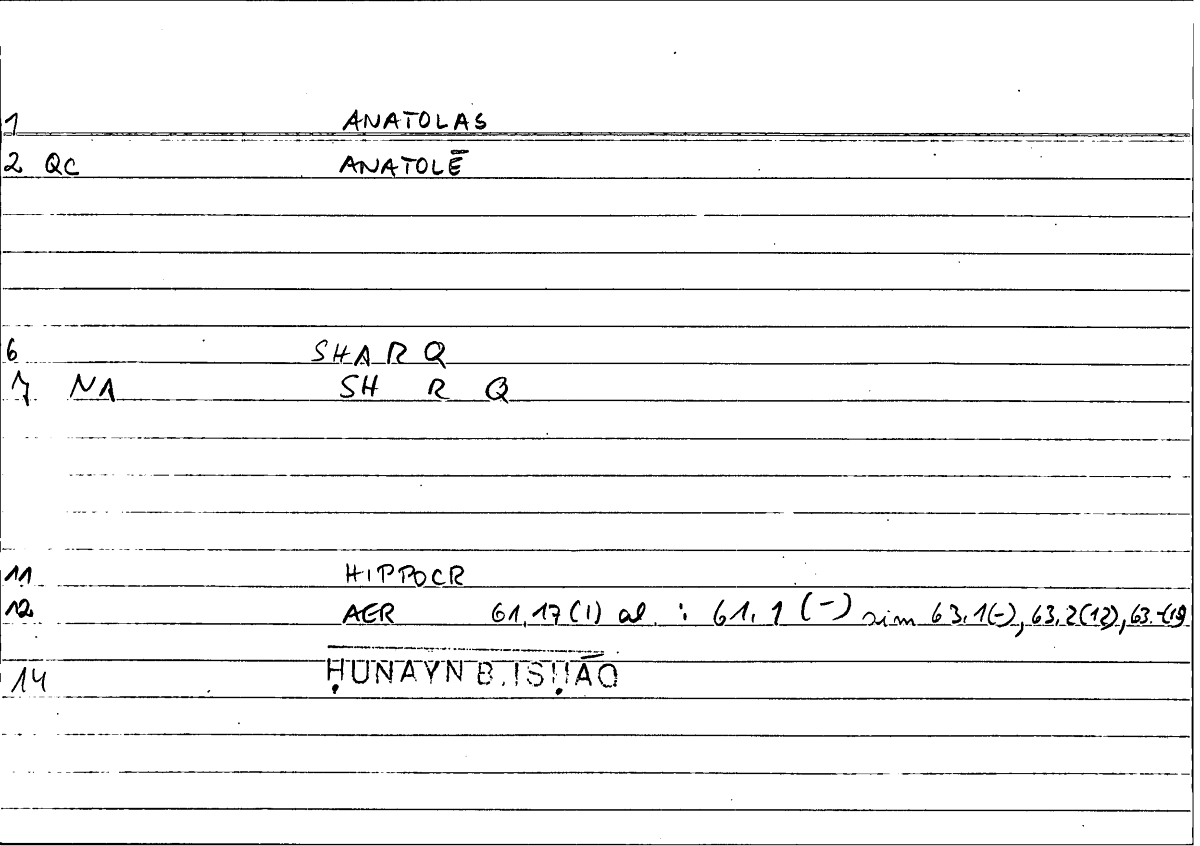 1 ANATOLAS
2 QC ANATOLĒ
6 SHARQ
7 NA SH R Q
11 HIPPOCR
12 AER 61,17(1) al. : 61,1 (-) sim 63,1(-), 63,2(12), 63
14 ḤUNAYN B. ISḤĀQ